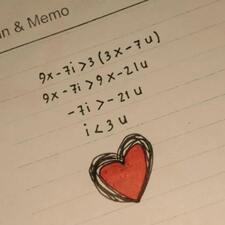 n & Memo
9x-7i>3(3x-7u)
9x-7i>9x-21u
-7i>-21u
i<3u